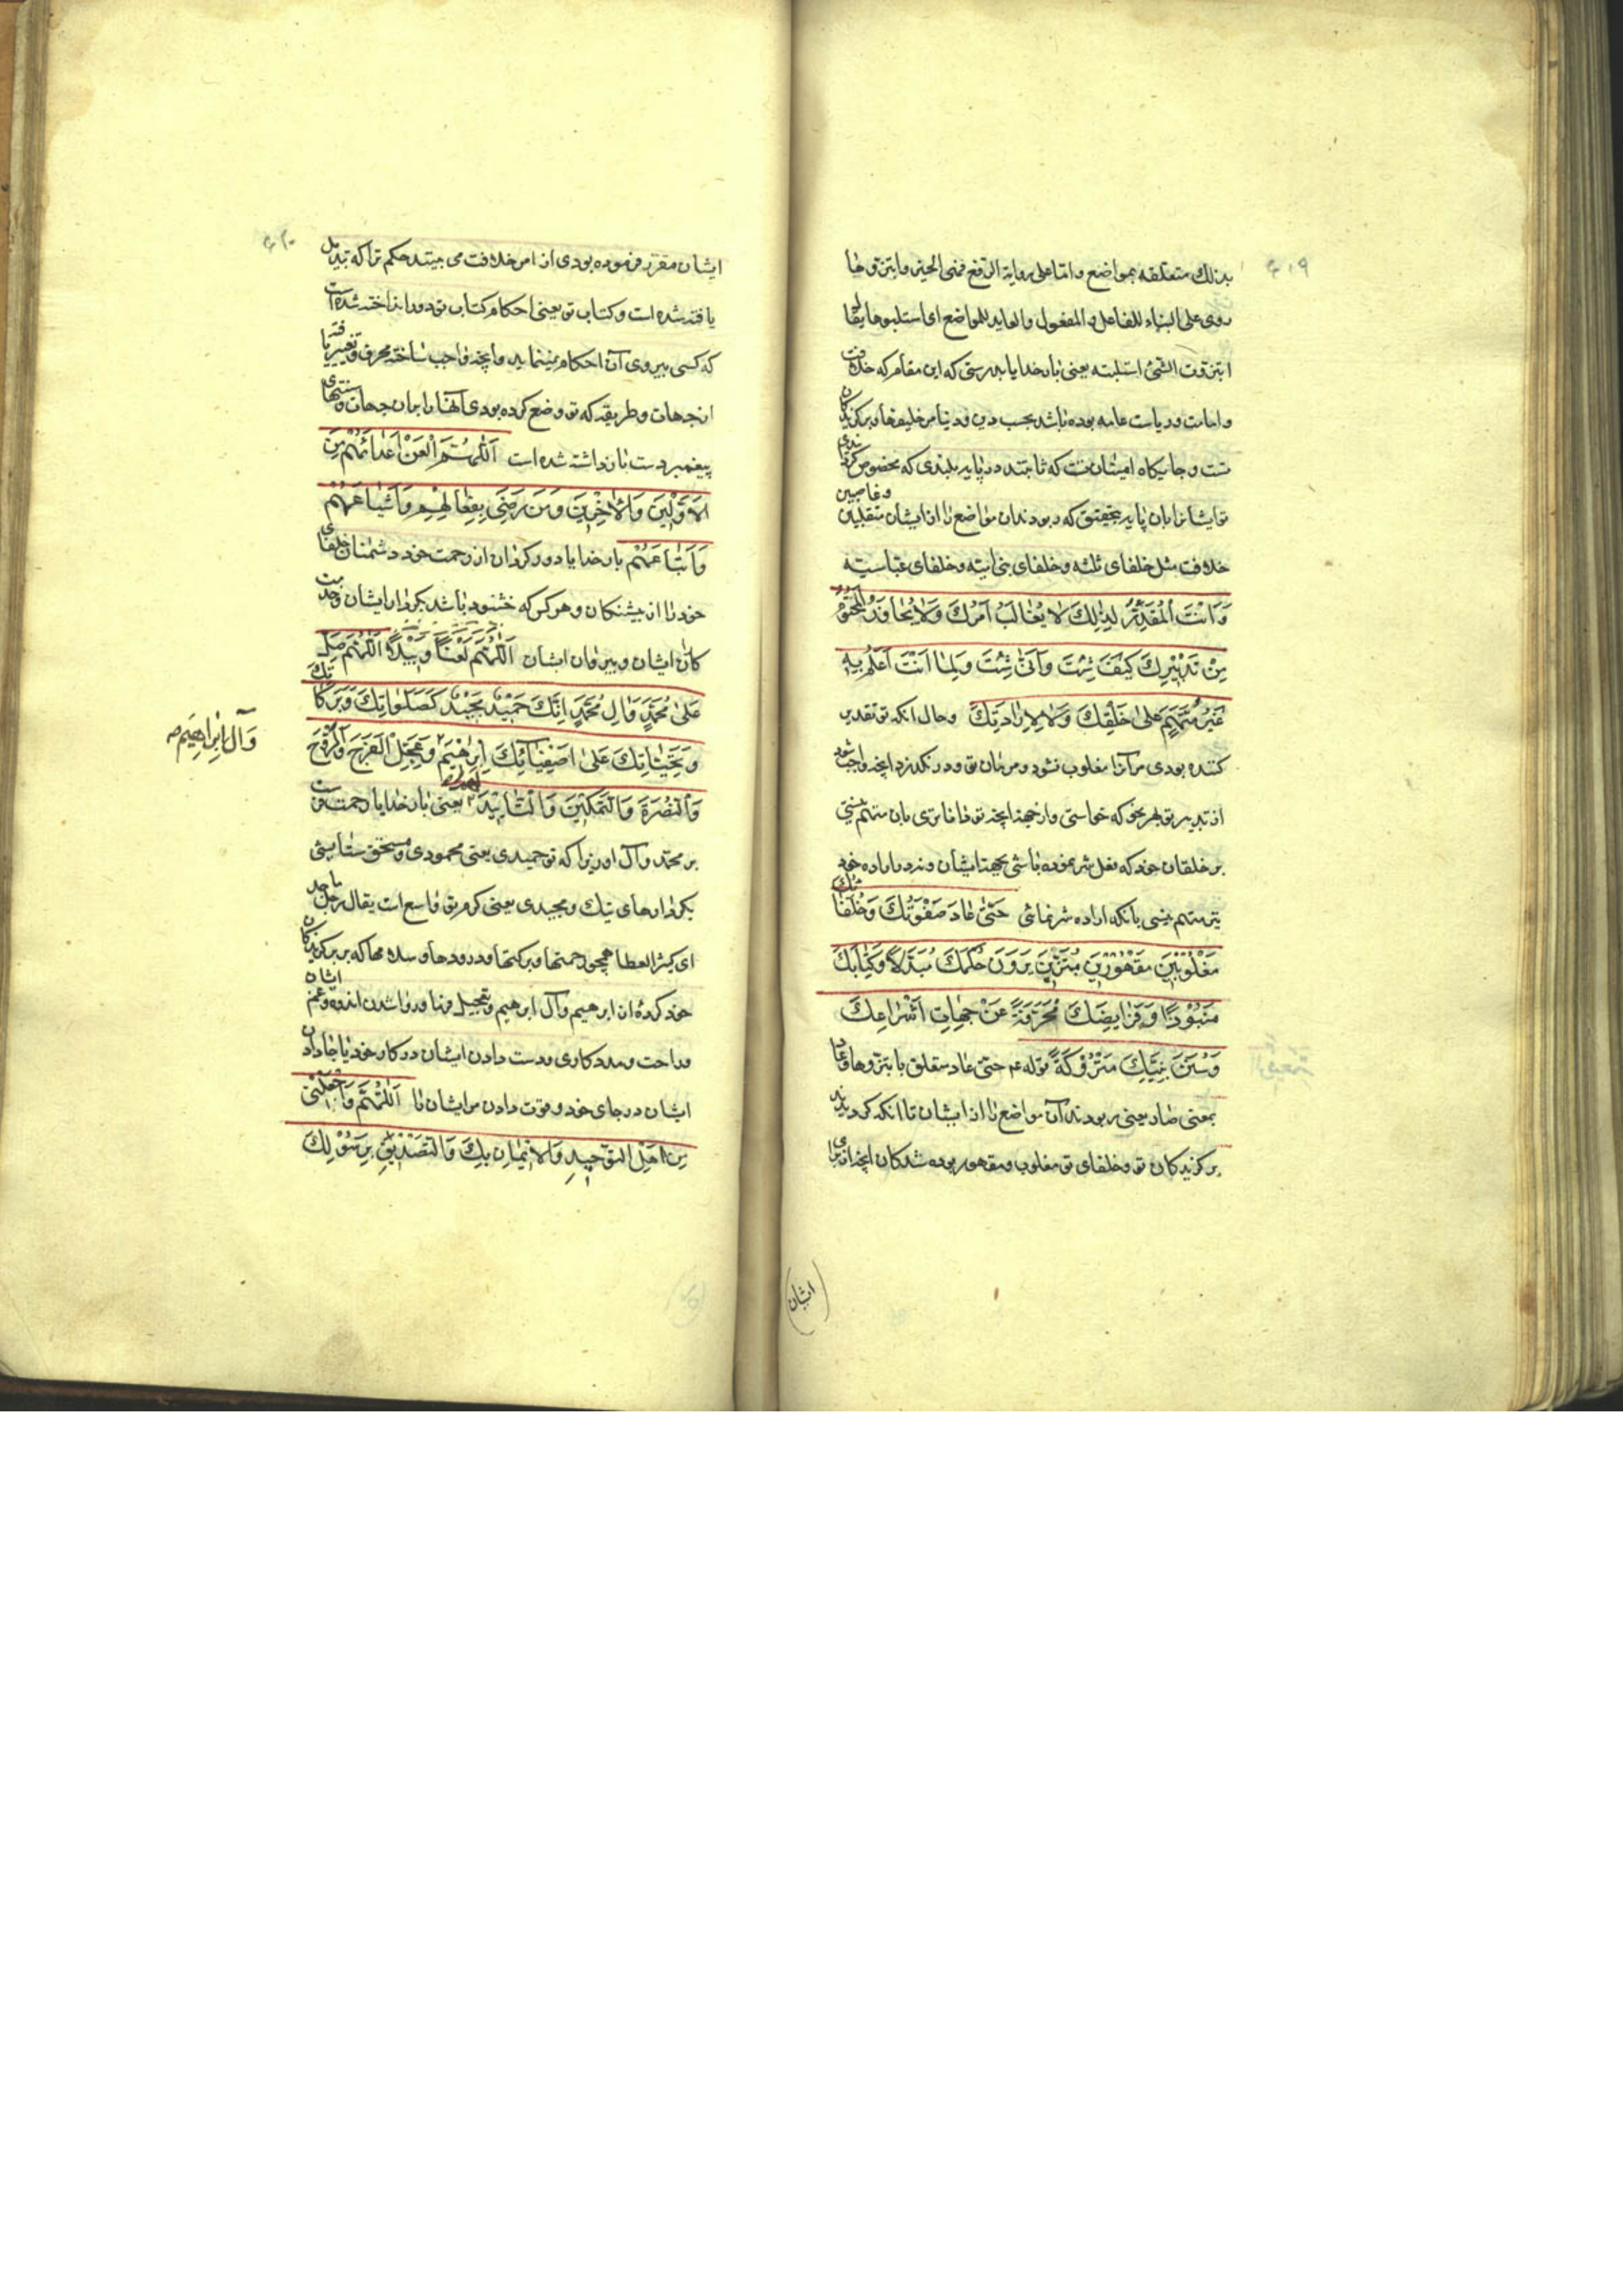 ۴۱۹
بذلك متعلقه بمواضع واما على رواية الرفع فمنی الحین وابتزوها
روی علی البناء للفاعل و المفعول والعاید للمواضع ای استلبوها یقال
ابتززت الشئ استلبته یعنی بار خدایا بدرستی که این مقام که خلافت
و امامت و ریاست عامه بوده باشد بحسب دین و دنیا مر خلیفها و برکزیدکان
تست و جایکاه امینان تست که ثابتند در پایه بلندی که مخصوص کردانیدی
تو ایشانرا بان پایه بتحقیق که ربودند ان مواضع را از ایشان متقلبین و غاصبین
خلافت مثل خلفای ثلثه و خلفای بنی امیه و خلفای عباسیه
وَاَنْتَ الْمُقَدِّرُ لِذٰلِكَ لاٰ يُغٰالَبُ اَمْرُكَ وَلاٰ يُجٰاوَزُ الْمَحْتُوْمُ
مِنْ تَدْبِيْرِكَ كَيْفَ شِئْتَ وَاَنّٰى شِئْتَ وَلِمٰا اَنْتَ اَعْلَمُ بِهِ
غَيْرُ مُتَّهَمٍ عَلىٰ خَلْقِكَ وَلاٰ لِاِرٰادَتِكَ وحال آنکه تو تقدیر
کننده بودی مر آنرا مغلوب نشود فرمان تو و در نکذرد آنچه واجب شود
از تدبیر تو بهر نحو که خواستی و از هر جهة آنچه تو داناتری بان متهم نیستی
بر خلقان خود که فعل شر نموده باشی بجهة ایشان و نه در اراده خود
نیز متهم نیستی بانکه اراده شر نمائی حَتّٰى عٰادَ صَفْوَتُكَ وَخُلَفٰاؤُكَ
مَغْلُوْبِيْنَ مَقْهُوْرِيْنَ مُبْتَزِّيْنَ يَرَوْنَ حُكْمَكَ مُبَدَّلاً وَكِتٰابَكَ
مَنْبُوْذًا وَفَرٰايِضَكَ مُحَرَّفَةً عَنْ جِهٰاتِ اَشْرٰاعِكَ
وَسُنَنَ نَبِيِّكَ مَتْرُوْكَةً قوله ع حتی عاد متعلق بابتزوها و عاد
بمعنی صار یعنی ربودند آن مواضع را از ایشان تا انکه کردیدند
برکزیدکان تو و خلفای تو مغلوب و مقهور ربوده شدکان آنچه از برای
(ایشان)
۴۲۰
ایشان مقرر فرموده بودی از امر خلافت می بینند حکم ترا که تبدیل
یافته شده است و کتاب تو یعنی احکام کتاب تو دور انداخته شده است
که کسی پیروی آن احکام نمینماید و آنچه واجب ساخته محرف و تغییر یافته
از جهات و طریقه که تو وضع کرده بودی آنها را بران جهات و سنتهای
پیغمبرت دست باز داشته شده است اَللّٰهُمَّ الْعَنْ اَعْدٰائَهُمْ مِنَ
الاَوَّلِيْنَ وَالْاٰخِرِيْنَ وَمَنْ رَضِيَ بِفِعٰالِهِمْ وَاَشْيٰاعَهُمْ
وَاَتْبٰاعَهُمْ بار خدایا دور کردان از رحمت خود دشمنان خلفای
خود را از پیشینکان و هر کس که خشنود باشد بکردار ایشان و جماعت
کان ایشان و پیروان ایشان اَللّٰهُمَّ لَعْنًا وَبِيْلاً اَللّٰهُمَّ صَلِّ
عَلىٰ مُحَمَّدٍ وَاٰلِ مُحَمَّدٍ اِنَّكَ حَمِيْدٌ مَجِيْدٌ كَصَلَوٰاتِكَ وَبَرَكٰاتِكَ
وَتَحِيّٰاتِكَ عَلىٰ اَصْفِيٰائِكَ اِبْرٰهِيْمَ وَعَجِّلِ الْفَرَجَ وَالرَّوْحَ
وَآلِ اِبْرٰاهِيْمَ صح
وَالنُّصْرَةَ وَالتَّمْكِيْنَ وَالتَّأْيِيْدَ لَهُمْ یعنی بار خدایا رحمت فرست
بر محمد و آل او زیرا که تو حمیدی یعنی محمودی و مستحق ستایشی
بکردارهای نیك و مجیدی یعنی کرم تو واسع است یقال رجل ماجد
ای کثیر العطا همچو رحمتها و برکتها و درودها و سلامها که بر برکزیدکان
خود کردۀ از ابرهیم و آل ابرهیم و تعجیل فرما در وا شدن اندوه و غم ایشان
و راحت و مددکاری و دست دادن ایشان در کار خود یا جا دادن
ایشان در جای خود و قوت دادن مر ایشان را اَللّٰهُمَّ وَاجْعَلْنِيْ
مِنْ اَهْلِ التَّوْحِيْدِ وَالاِيْمٰانِ بِكَ وَالتَّصْدِيْقِ بِرَسُوْلِكَ